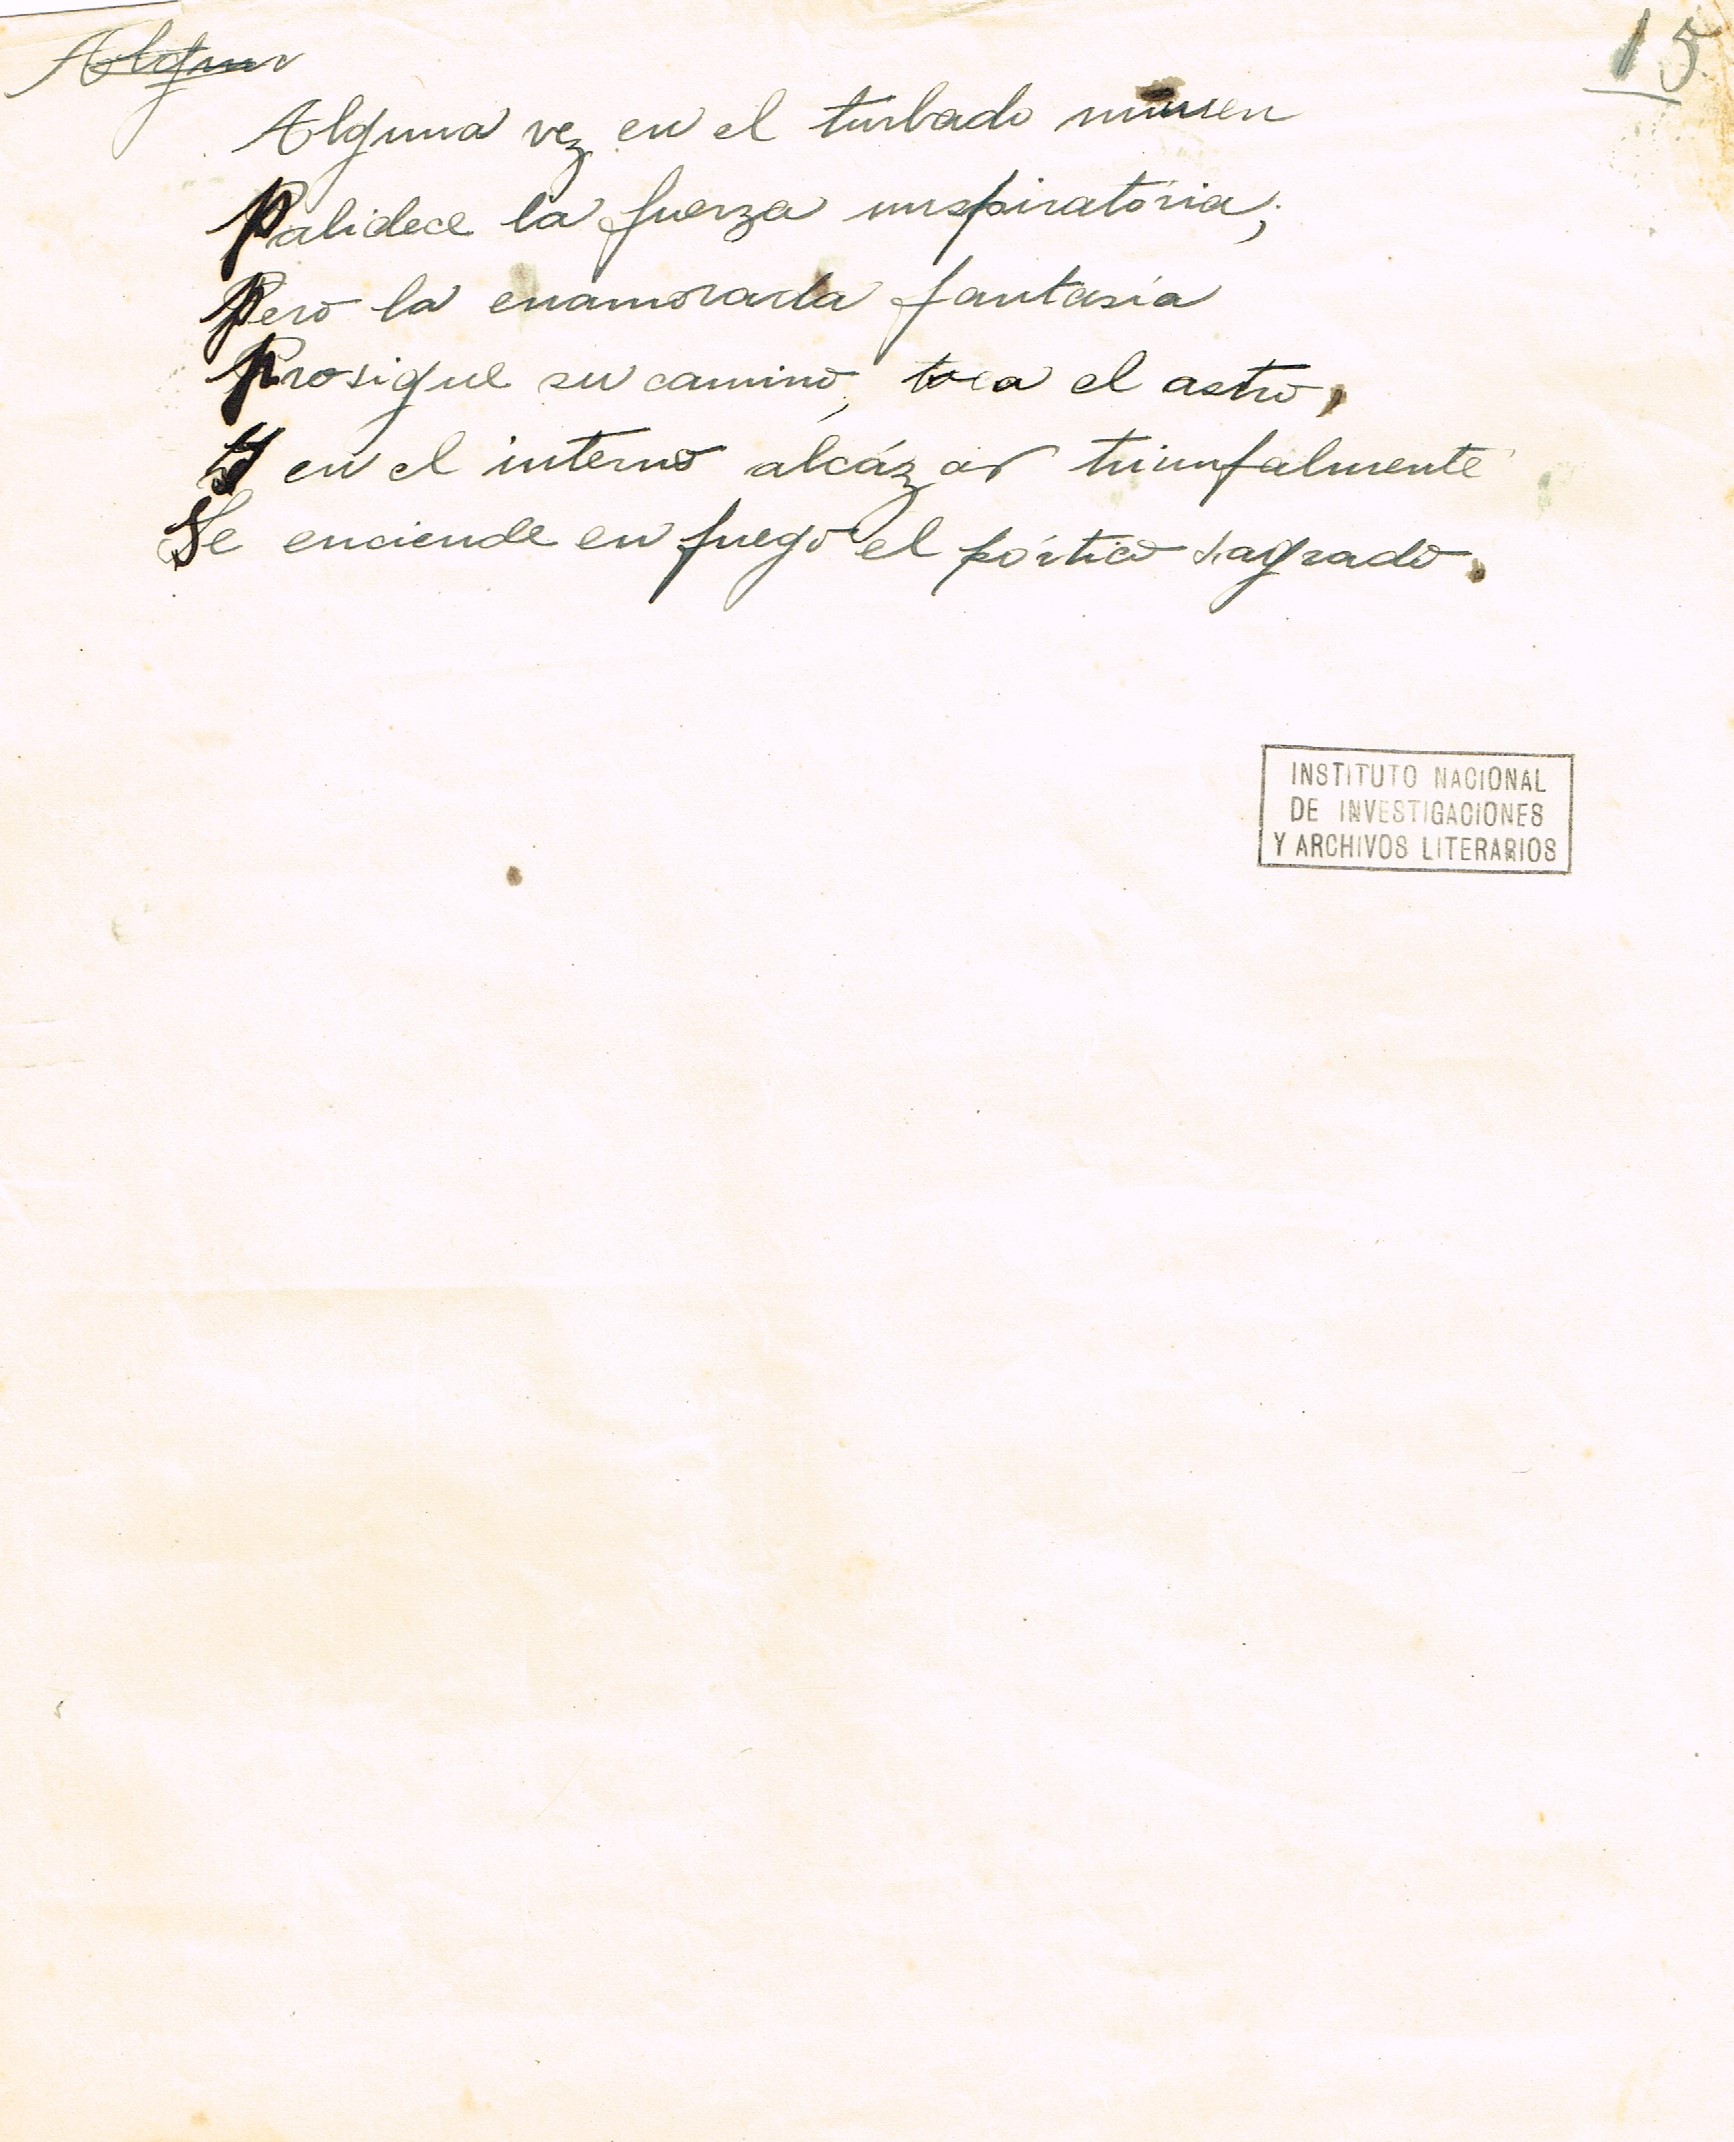 Algun
15
Alguna vez en el turbado numen
Palidece la fuerza inspiratoria;
Pero la enamorada fantasía
Prosigue su camino, toca el astro,
Y en el interno alcázar triunfalmente
Se enciende en fuego el pórtico sagrado.
INSTITUTO NACIONAL
DE INVESTIGACIONES
Y ARCHIVOS LITERARIOS